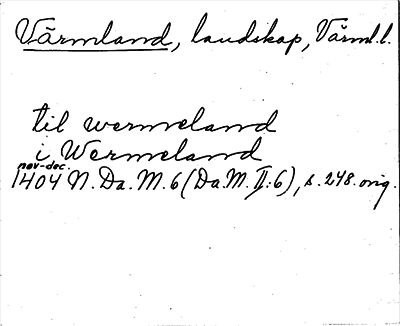 Värmland, landskap, Värml.l.
til wermeland
i Wermeland
nov-dec.
1404 N.Da.M.6 (Da.M.II:6), s.248. orig.